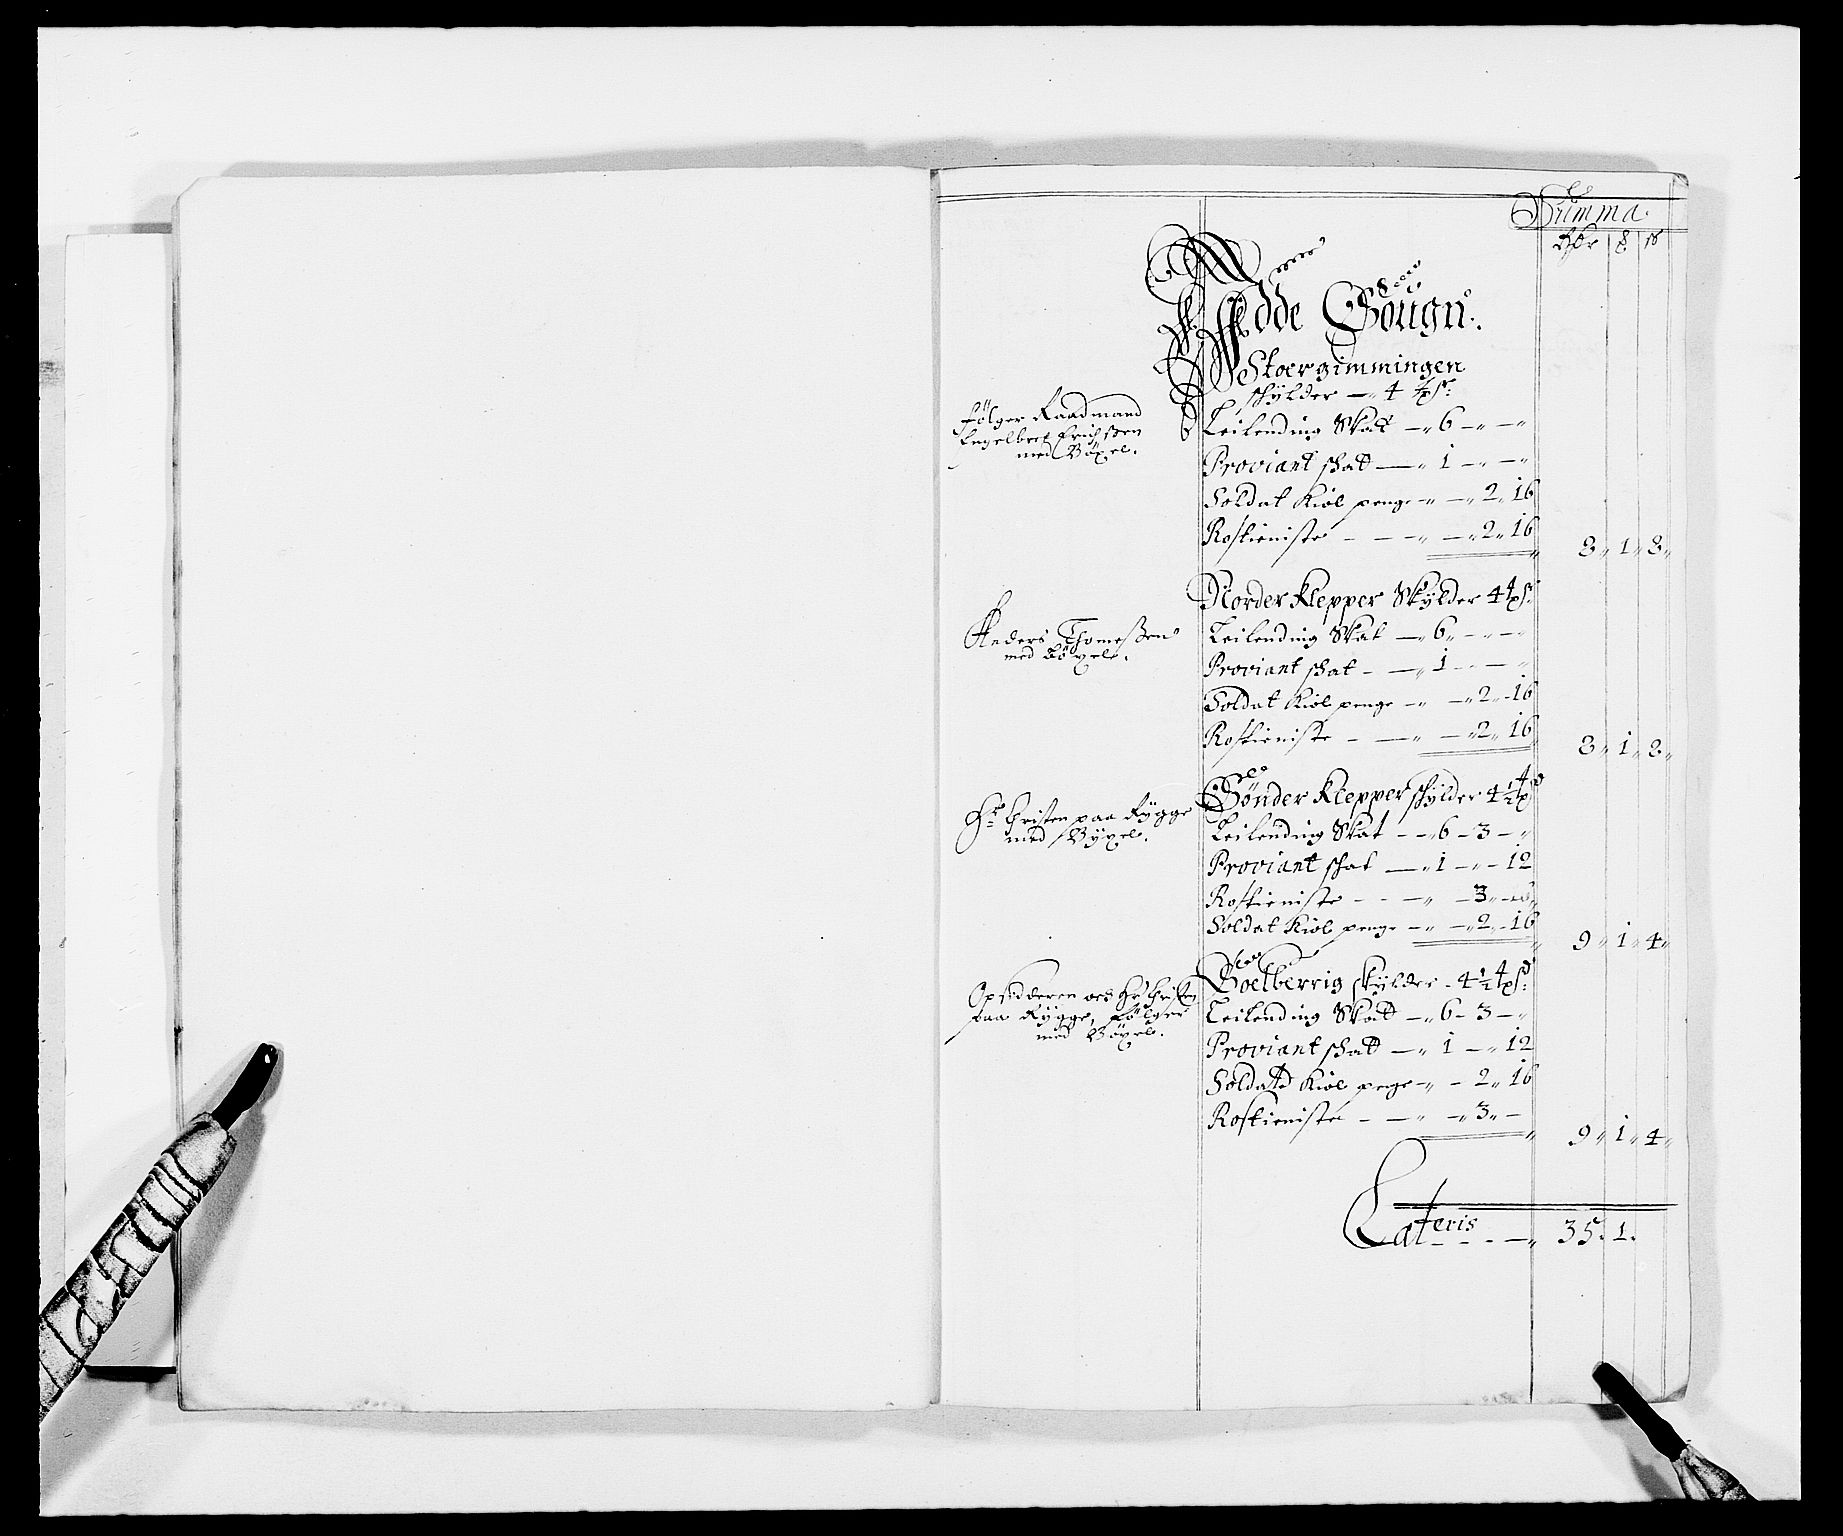 Summa
Rdr ß
Rÿgge Sougn.
Stoergimmingen
skÿlder — 4
Følger Raadmand
Engelbret Erichssen
med Bøxel.
Leilending Skat — 6 — —
Proviant skat — 1 — —
Soldat Kiøl penge — 2 16
Rostieniste — — — 2 16
8 1 8
Norder Klepper Skÿlder 4
Anders Thomeßen
med bøxele.
Leilending Skat — 6 — —
Proviant skat — 1 — —
Soldat Kiøl penge — 2 16
Rostieniste — — — 2 16
8 1 8
Sønder Klepper skÿlder 4½
Hr Christen paa Rÿgge
med Bÿxel.
Leilending Skat — 6 — 3 —
Proviant skat — 1 — 12
Rostieniste — — — 3
Soldat Kiøl penge — 2 16
9 1 4
Soelberrig skÿlder — 4½
Opsidderen oes Hr Christen
paa Rÿgge, Følger
med Bøxele.
Leilending Skat — 6 — 3 —
Proviant skat — 1 — 12
Soldat Kiøl penge — 2 16
Rostieniste — — — 3 —
9 1 4
Lateris — — 35 1